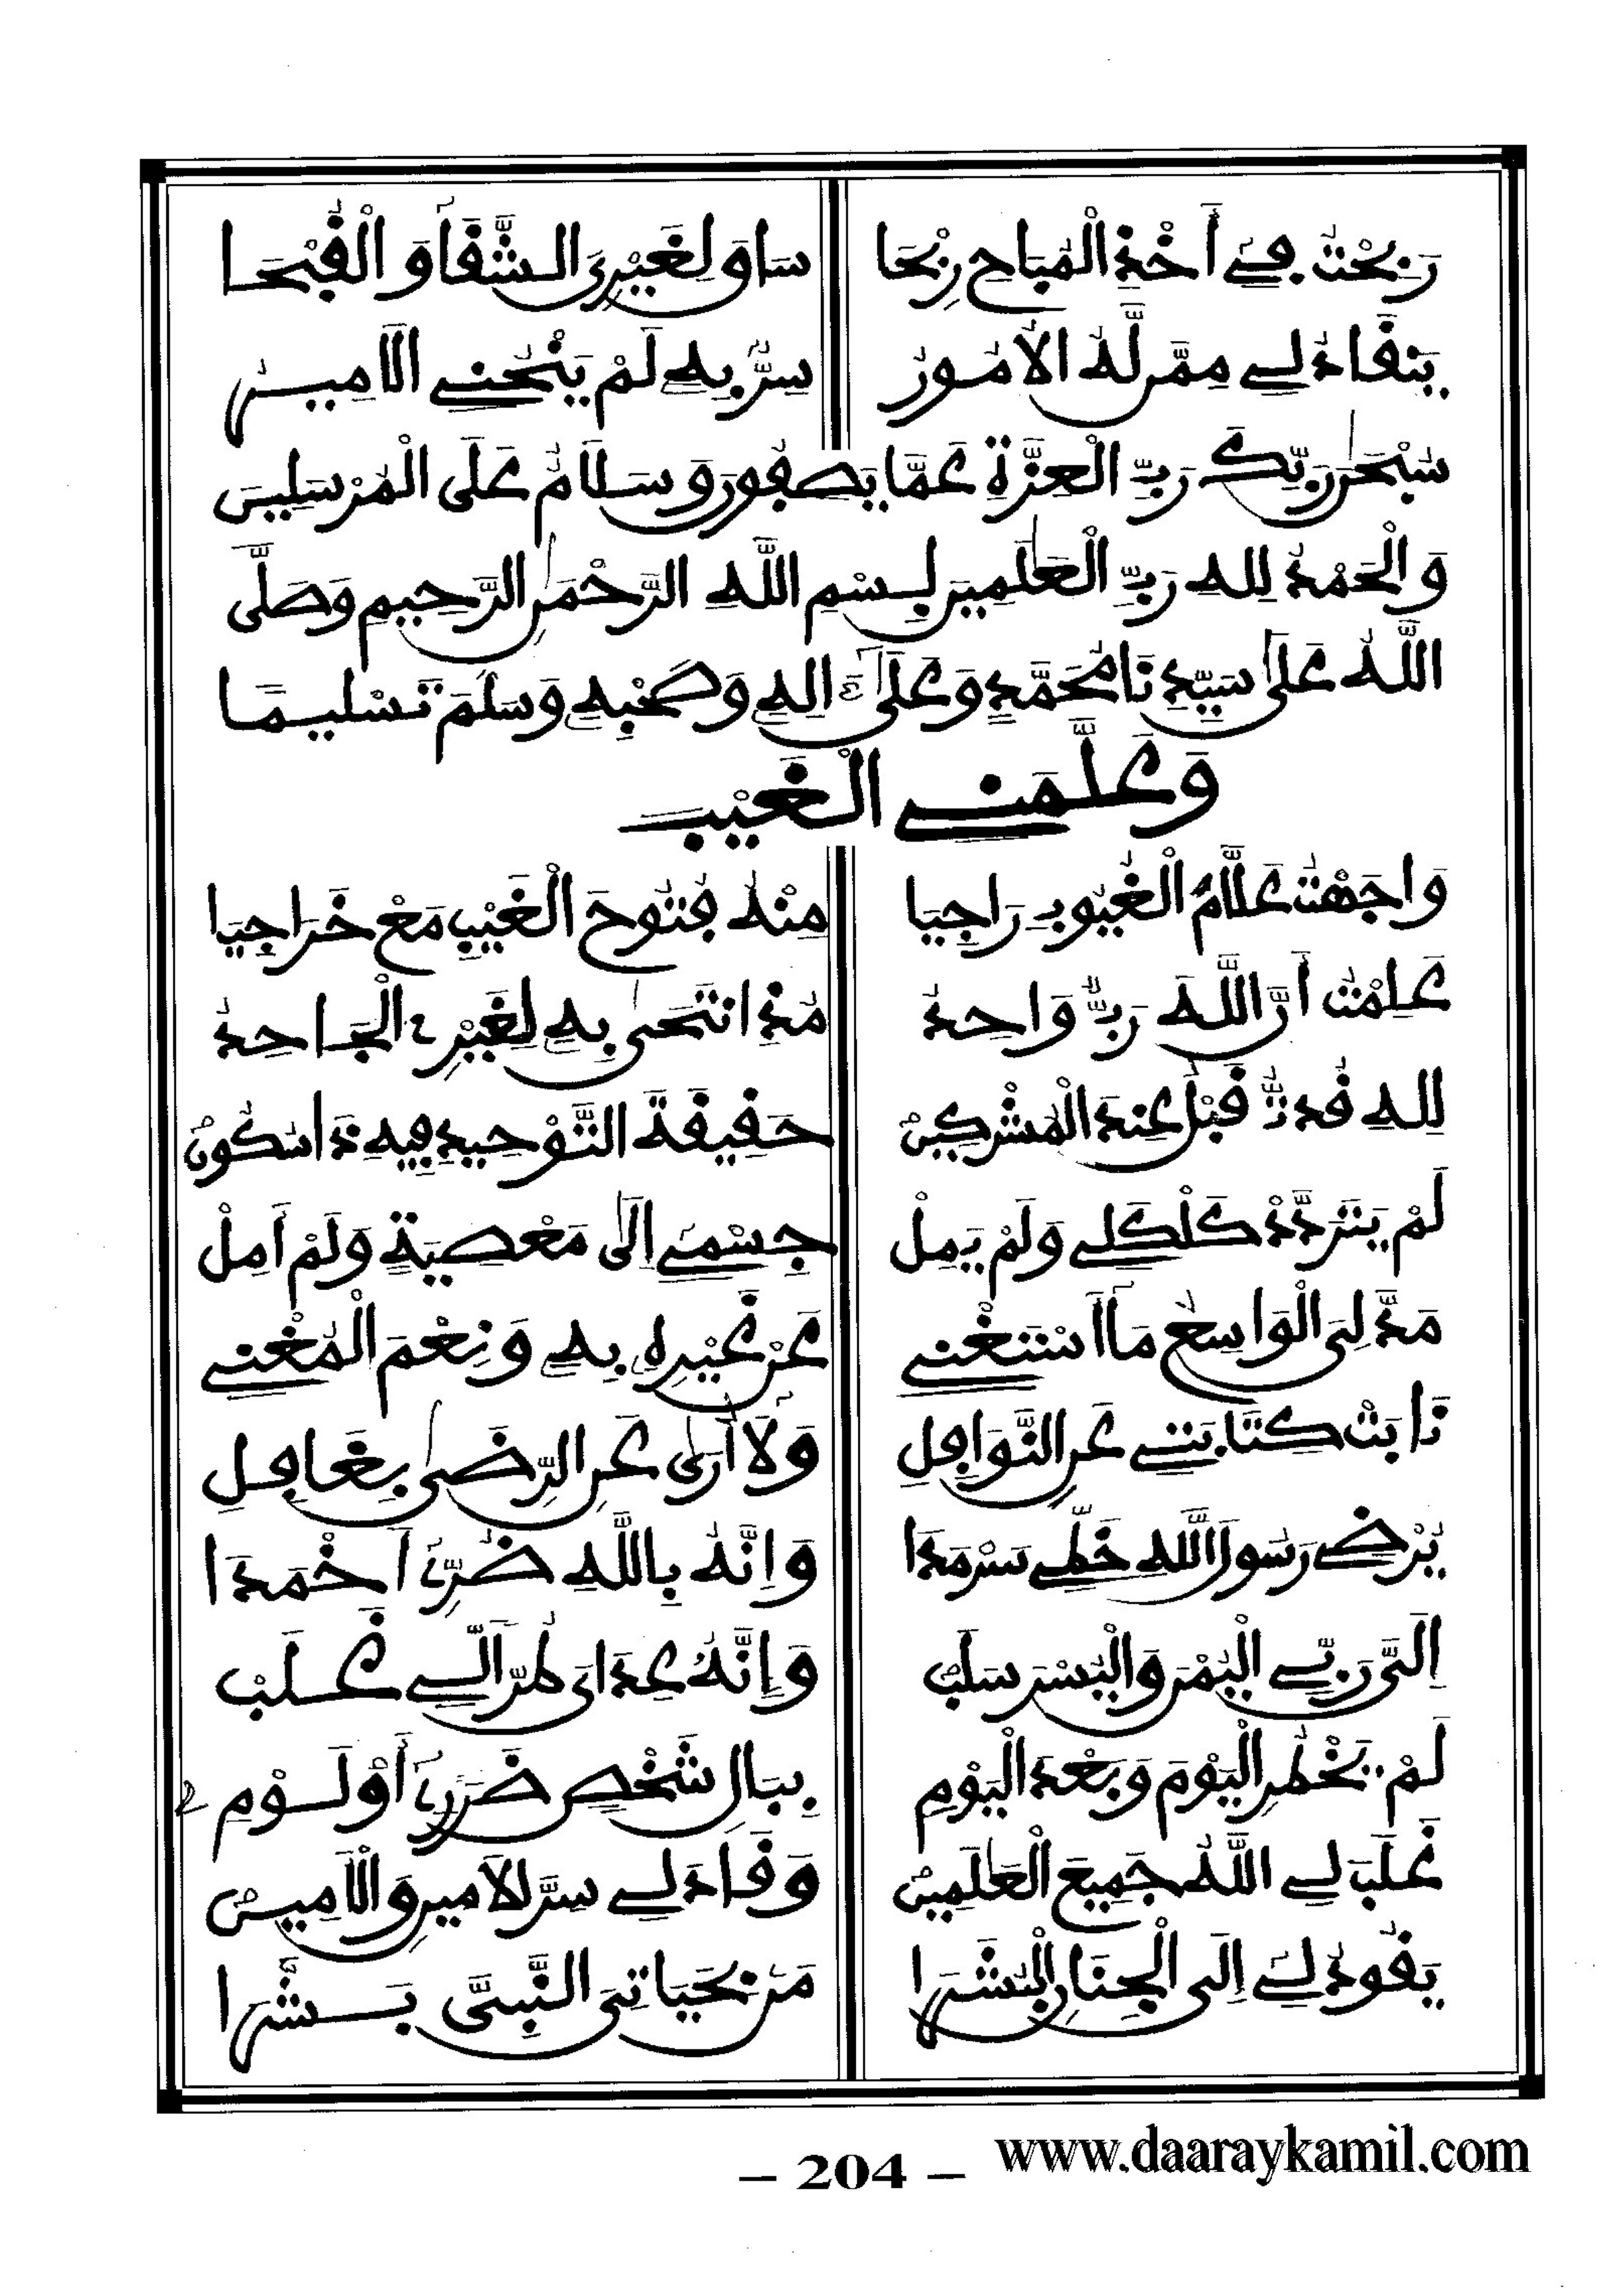 رَبِحْتُ فِي أَخْذِ الْمُبَاحِ رِبْحَا سَاوَ لِغَيْرِيَ الشَّقَا وَالْقُبْحَا
يَنْقَادُ لِي مِمَّن لَهُ الْأُمُورُ سِرٌّ بِهِ لَمْ يَنْحُنِي الْأَمِيرُ
سُبْحَٰنَ رَبِّكَ رَبِّ الْعِزَّةِ عَمَّا يَصِفُونَ وَسَلَامٌ عَلَى الْمُرْسَلِينَ
وَالْحَمْدُ لِلهِ رَبِّ الْعَٰلَمِينَ بِسْمِ اللَّهِ الرَّحْمَٰنِ الرَّحِيمِ وَصَلَّى
اللَّهُ عَلَى سَيِّدِنَا مُحَمَّدٍ وَعَلَى ءَالِهِ وَصَحْبِهِ وَسَلَّمَ تَسْلِيمًا
وَعَلَّمَنِي الْغَيْبَ
وَاجَهْتُ عَلَّامَ الْغُيُوبِ رَاجِيَا مِنْهُ فُتُوحَ الْغَيْبِ مَعْ خَرَاجِيَا
عَلِمْتُ أَنَّ اللَّهَ رَبٌّ وَاحِدُ مُذِ انْتَحَى بِهِ لِغَيْرِي الْجَاحِدُ
لِلهِ قُدتُّ قَبْلُ عِندَ الْمُشْرِكِينْ حَقِيقَةَ التَّوْحِيدِ فِيهِ ذَا سُكُونْ
لَمْ يَتَرَدَّدْ كَلْكَلِي وَلَمْ يَمِلْ جِسْمِي إِلَى مَعْصِيَةٍ وَلَمْ أَمِلْ
مَدَّ لِيَ الْوَاسِعُ مَا أَسْتَغْنِي عَنْ غَيْرِهِ بِهِ وَنِعْمَ الْمُغْنِي
نَابَتْ كِتَابَتِي عَنِ النَّوَافِلِ وَلَا أُرَى عَنِ الرِّضَى بِغَافِلِ
يُرْضِي رَسُولَ اللَّهِ خَطِّي سَرْمَدَا وَإِنَّهُ بِاللَّهِ ضُرِّي أَخْمَدَا
إِلَيَّ رَبِّي الْيُمْنَ وَالْيُسْرَ سَلَبْ وَإِنَّهُ عِدَايَ طُرًّا لِي غَلَبْ
لَمْ يَخْطُرِ الْيَوْمَ وَبَعْدَ الْيَوْمِ بِبَالِ شَخْصٍ ضَرَرِي أَوْ لَوْمِ
غَلَبَ لِي اللَّهُ جَمِيعَ الْعَٰلَمِينْ وَقَادَ لِي سِرًّا لِآمِينَ وَالْأَمِينْ
يَقُودُ لِي إِلَى الْجِنَانِ الْبُشَرَا مَنْ بِحَيَاتِيَ النَّبِيَّ بَشَّرَا
www.daaraykamil.com
– 204 –